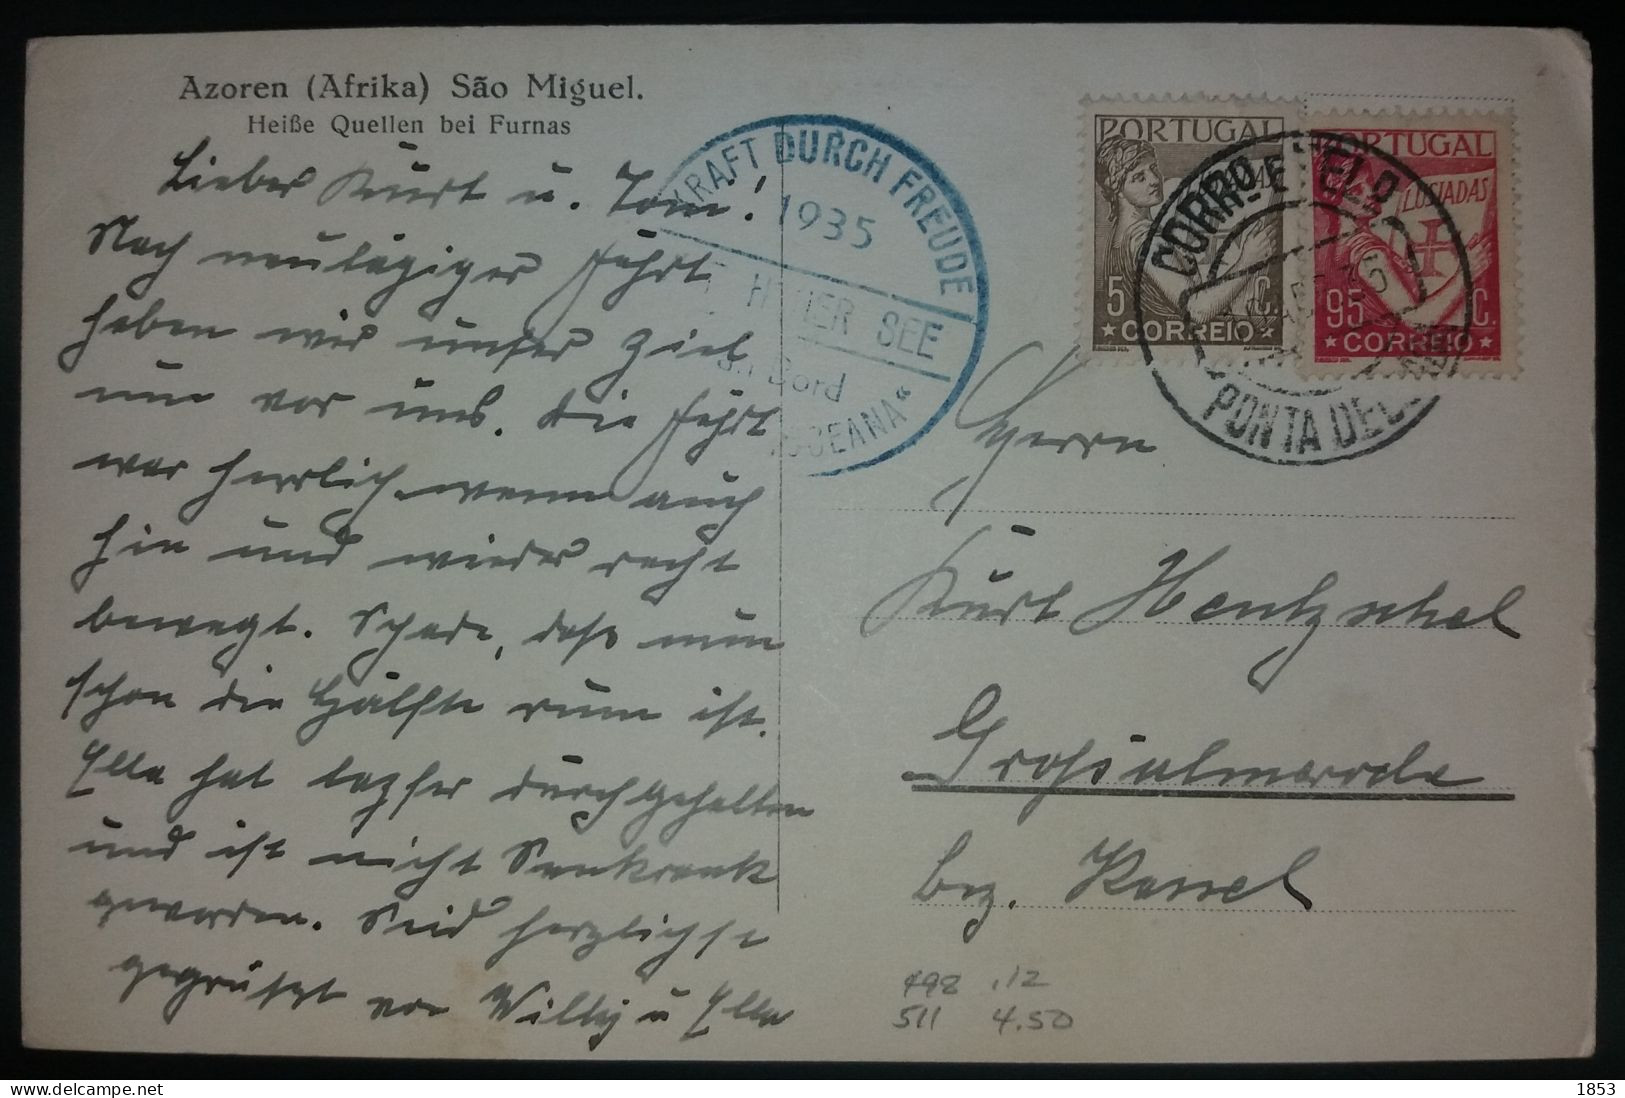 Azoren (Afrika) São Miguel.
Heiße Quellen bei Furnas
Lieber Kurt u. Toni!
Nach neuntägiger Fahrt
haben wir unser Ziel
nun vor uns. Die Fahrt
war herrlich wenn auch
hin und wieder recht
bewegt. Schade, daß nun
schon die Hälfte rum ist.
Ella hat tapfer durchgehalten
und ist nicht Seekrank
geworden. Seid herzlichst
gegrüßt von Willy u Ella
KRAFT DURCH FREUDE
1935
HOHER SEE
an Bord
"OCEANA"
PORTUGAL
5 C.
CORREIO
PORTUGAL
LUSIADAS
95 C.
CORREIO
CORRO E TELO
PONTA DEL
Herrn
Kurt Hentzschel
Großalmerode
Bez. Kassel
498 .12
511 4.50
1853